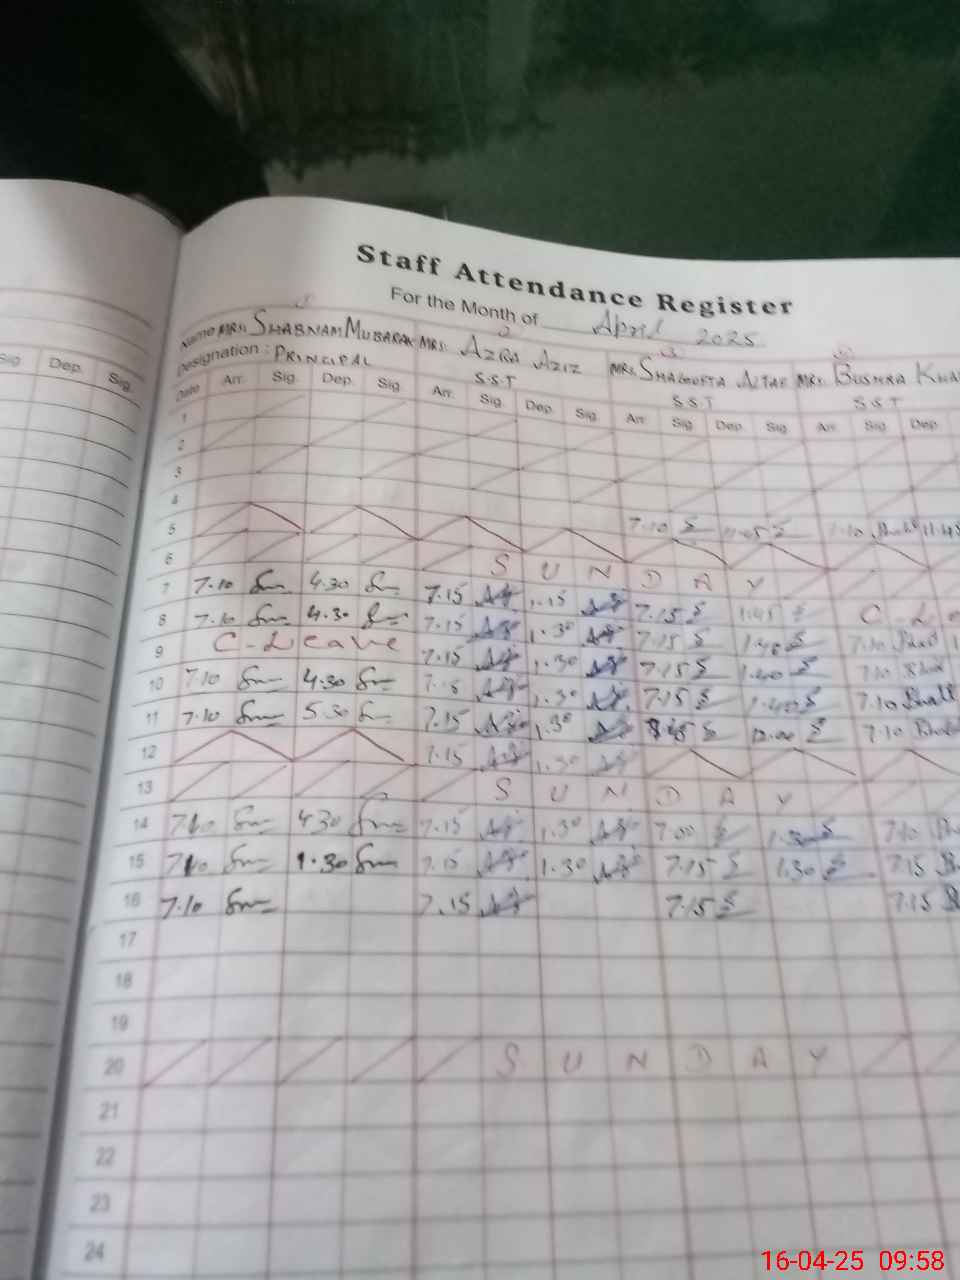 Staff Attendance Register
For the Month of April 2025
Name MRS. SHABNAM MUBARAK MRS. AZRA AZIZ MRS. SHAGUFTA ALTAF MRS. BUSHRA
Designation : PRINCIPAL S.S.T S.S.T S.S.T
Sig Dep. Sig.
Date Arr. Sig. Dep. Sig. Arr. Sig. Dep. Sig. Arr. Sig. Dep. Sig. Arr. Sig. Dep.
1
2
3
4
5 7.10 7.10 11.45
6 S U N D A Y
7 7.10 4.30 7.15 1.15 7.15 1.45 C. L
8 7.10 4.30 7.15 1.30 7.15 7.10
9 C-Leave 7.15 1.30 7.15 1.40 7.10
10 7.10 4.30 7.15 1.30 7.15 1.40 7.10
11 7.10 5.30 7.15 1.30 12.00 7.10
12 7.15 1.30
13 S U N D A Y
14 7.10 4.30 7.15 1.30 7.00 1.30 7.10
15 7.10 1.30 7.15 1.30 7.15 1.30 7.15
16 7.10 7.15 7.15 7.15
17
18
19
20 S U N D A Y
21
22
23
24
16-04-25 09:58